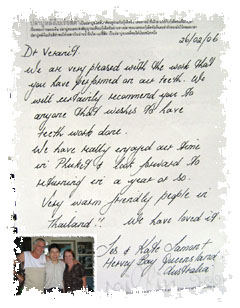 26/02/06
Dr Veranit.
We are very pleased with the work that
you have performed on our teeth. We
will certainly recommend you to
anyone that wishes to have
teeth work done.
We have really enjoyed our time
in Phuket & look forward to
returning in a year or so.
Very warm friendly people in
Thailand.. We have loved it
& Kate
Hervey Bay Queensland
Australia